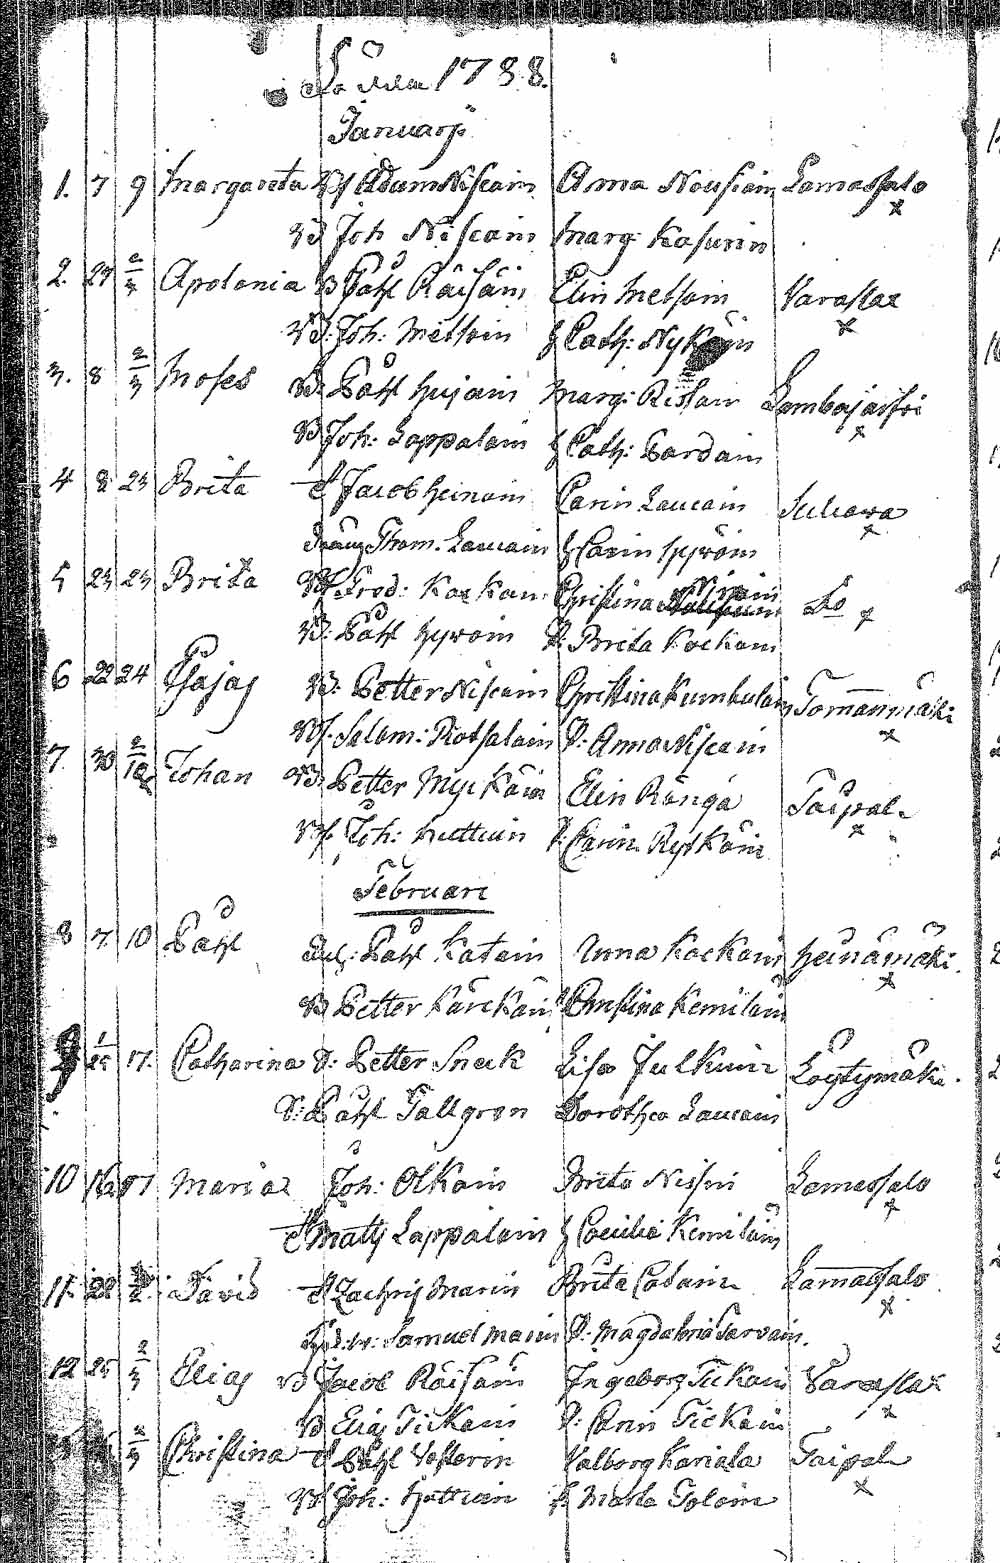 1788.
Januarij
1. 7 9 Margareta Adam Niscain Anna Nousiain Lamassalo x
Joh Niscain Marg: Kasurin
2. 27 2/3 Apolonia Påhl Räisäin Elin Metsoin Varaslax x
Joh: Metsoin Cath: Nykäin
3. 8 2/3 Moses Påhl Hujain Marg: Rissain Lambajärfvi x
Joh: Lappalain Cath: Pardain
4 8 23 Brita Jacob Heinoin Carin Laucain Suluawa x
Thom. Laucain Carin Hyvöin
5 23 23 Brita Fred: Kockoin Christina Do x
Påhl Hyvöin Brita Kockoin
6 22 24 Esajas Petter Niscain Christina Kumbulain Tomanmäki x
Salom: Rotsalain Anna Niscain
7. 30 2/10 Johan Petter Myckäin Elin Rånga Taipale x
Joh: Huttuin Carin Ryskäin
Februari
8 7 10 Påhl Påhl Katain Anna Kockoin Heinämäki. x
Petter Kärckäin Christina Kemiläin
9 1/25 17. Catharina Petter Sneck Lisa Julkuin Löytymäki.
Påhl Tallgren Dorothea Laucain
10 17 Maria Joh: Olkoin Brita Nissin Lamassalo x
Matts Lappalain Caecilia Kemiläin
11. 22 David Zachrij Manin Brita Lamassalo x
Samuel Manin Magdalena Tarvain.
12 25 2/3 Elias Jacob Räisäin Ingeborg Tickain Varaslax x
Elias Tickain Carin Tickain
2/3 Christina Påhl Vesterin Valborg Kariala Taipale x
Joh: Huttuin Marta Toloin